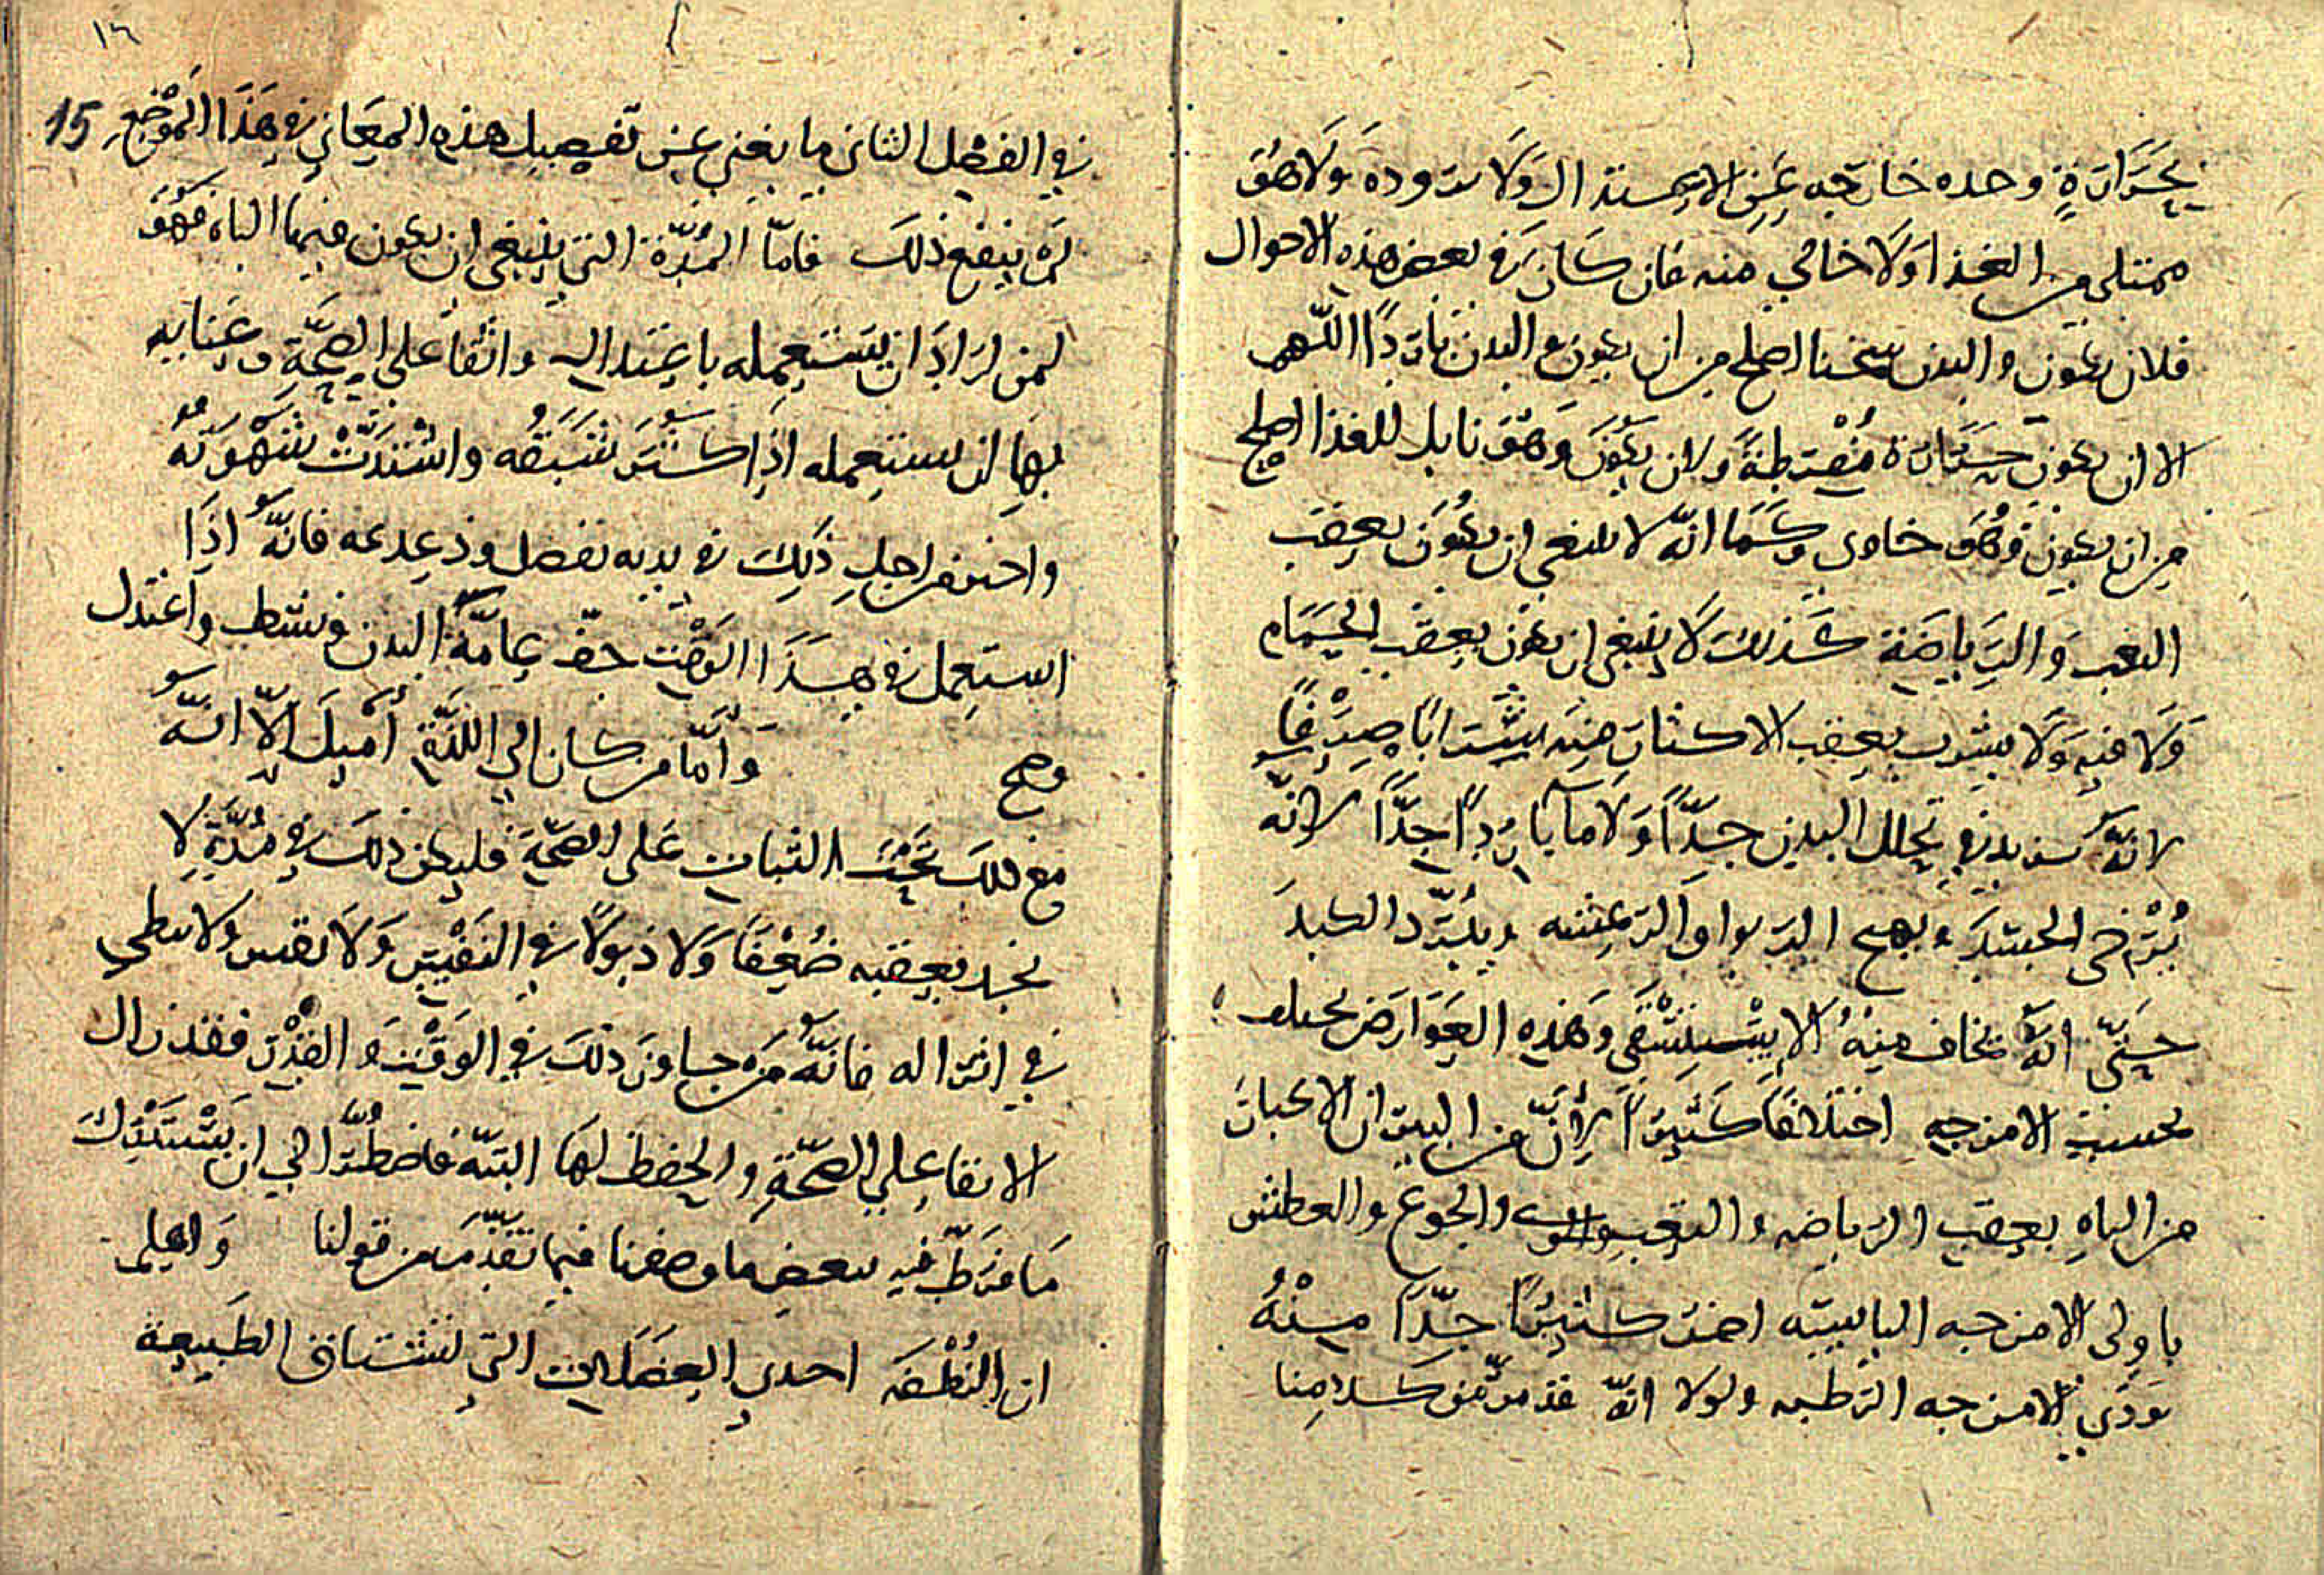 بحَرَارَةٍ وحده خارجه عَنِ الاعتدال وَلَا برودة وَلَا هُوَ
ممتلي من الغذا وَلَا خالي منه فان كان في بعض هذه الاحوال
فلان يكون والبدن سخنا اصلح من ان يكون والبدن بَارِدًا اللّهم
الا ان يكون حرَارة مُفْرطِةً ولان يكُونَ وَهُوَ نايل للغذا اصلح
من ان يكون وَهُوَ خاوى وكَمَا انّه لا ينبغي ان يكُوَن بعِقب
التعب وَالرِيَاضَة كَذلك لَا ينبغى ان يكون بعِقب الحَمَام
وَلَا فيهِ وَلَا يشرب بعِقب الاكثار مِنه شَرَابًا صِرْفًا
لانّهُ يزيد في تحلل البدن جدًّا وَلَا مآ بَارِدًا جدًّا لانّه
يُرْخى الجسَدَ ويهيج الربوا وَالرعشه ويُبَرّد الكبدَ
حَتّى انّهُ يخاف مِنْهُ الاسْتِسْقَى وَهَذِهِ العَوَارَض تختلف
بحسب الامزجه اختلافًا كَثيرًا لِأَنَّ من البين ان الاكبار
من الباهِ بعِقب الرياضه والتعب والجوع والعطش
بأولى الامزجه اليابسَه اضر كثيرًا جدًّا مِنْهُ
بذوي الامزجه الرطبه ولولا انّهُ قد مرّ من كلامِنا
١٦
15
في الفصْل الثاني ما يغني عن تفصيل هذه المعَاني في هَذَا الموْضِع
لم ينفع ذلك فامّا المُدّة التي ينبغي ان يكون فيها الباه فهُوَ
لمن ارَادَ ان يَستَعمِله باعتدال واتقاعلي الصِحَّةِ وعنايه
بهَا ان يستعمله اذَا كثُر شَبَقُه واشْتدَّتْ شَهْوَتُهُ
واحس من اجل ذَلِك في بدنه بفضل ودغدغه فانّهُ اذَا
استَعمل في هذَا الوقْت خفّ عامّةُ البدن ونشط واعْتدل
وصح وَامَّا من كان الى اللذّةِ أمْيلَ الّا انّهُ
مع ذلك يُحبُ الثبات عَلى الصحّةِ فليكن ذلك في مُدَّةٍ لا
يجد بعقبه ضُعْفًا وَلَا ذبولًا في النَفْسِ وَلَا نفس ولا يبطي
في انزاله فانّهُ من جاوز ذلكَ في الوَقْت وَ القدْرِ فقد زال
الاتقاعلي الصحّةِ والحفظ لهَا البتّه فاضطُرَّ الي ان يَسْتَدْركَ
مَا فرّطّ فيهِ ببعض ما وصفنا فيما تقدّمَ من قولنا وَاعلم
ان النُطفَه احدي الفضَلات التي تشتاق الطبيعة